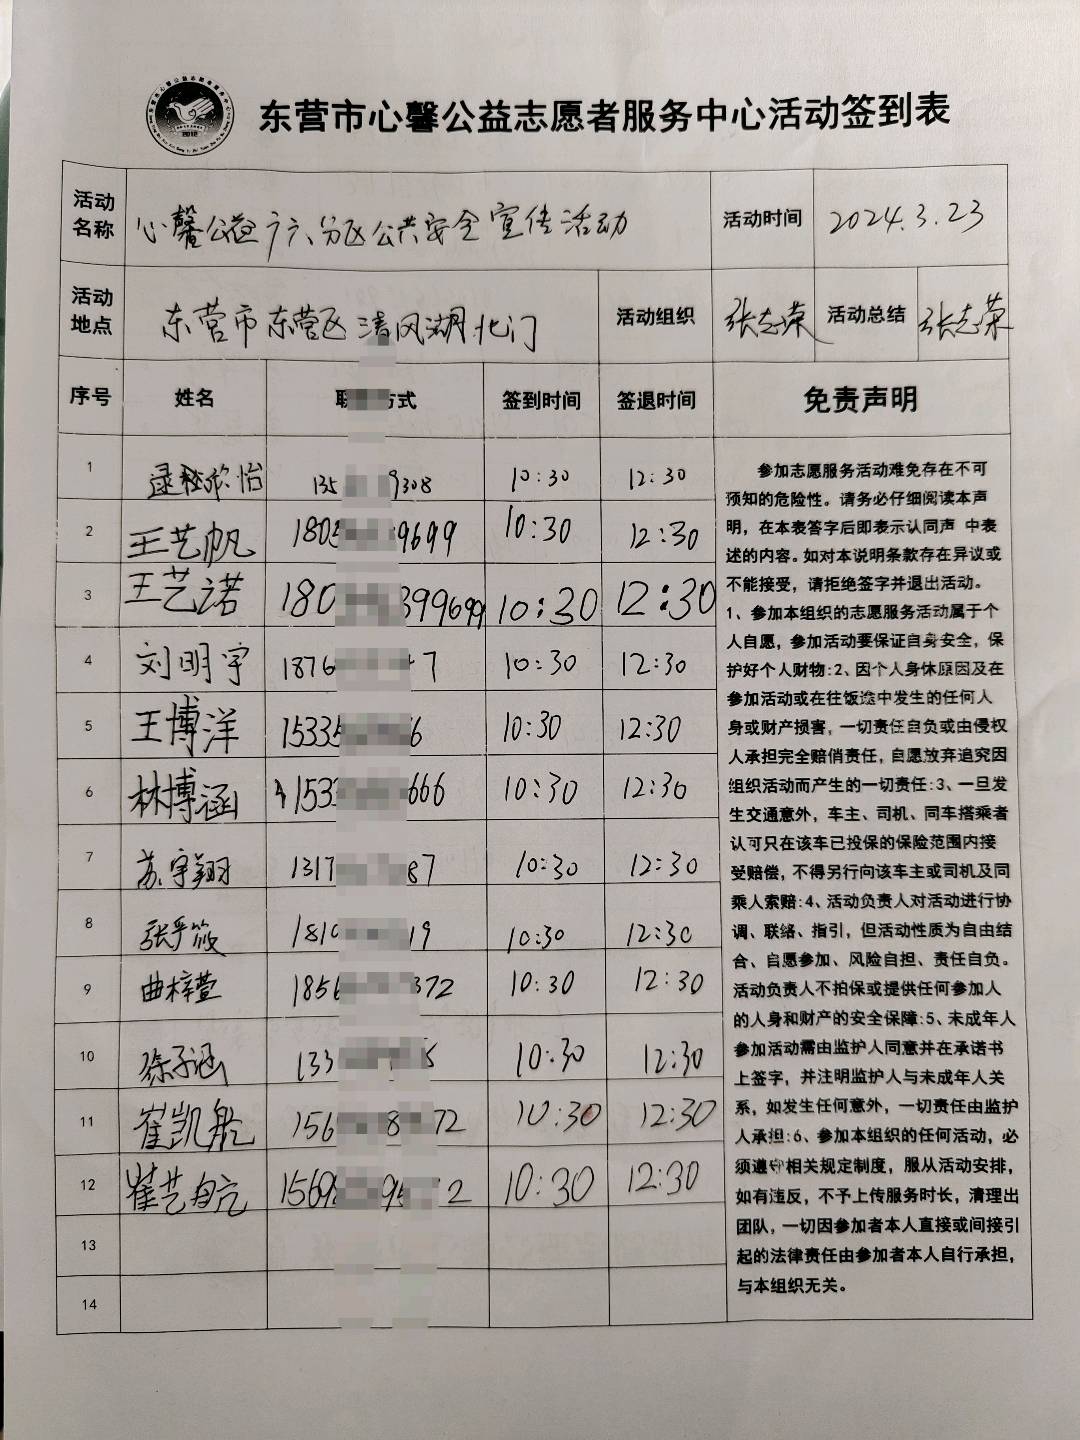 东营市心馨公益志愿者服务中心活动签到表
活动名称 心馨公益广六分区公共安全宣传活动 活动时间 2024.3.23
活动地点 东营市东营区清风湖北门 活动组织 张志荣 活动总结 张志荣
序号 姓名 联 方式 签到时间 签退时间 免责声明
1 怡 135 9308 10:30 12:30
2 王艺帆 1805 9699 10:30 12:30
3 王艺诺 180 399699 10:30 12:30
4 刘明宇 1876 7 10:30 12:30
5 王博洋 15335 6 10:30 12:30
6 林博涵 1533 666 10:30 12:30
7 苏宇翔 1317 87 10:30 12:30
8 张予筱 1810 19 10:30 12:30
9 曲梓萱 1856 372 10:30 12:30
10 徐子涵 133 5 10:30 12:30
11 崔凯航 156 8 72 10:30 12:30
12 崔艺航 1569 95 2 10:30 12:30
13
14
参加志愿服务活动难免存在不可
预知的危险性。请务必仔细阅读本声
明，在本表答字后即表示认同声 中表
述的内容。如对本说明条款存在异议或
不能接受，请拒绝签字并退出活动。
1、参加本组织的志愿服务活动属于个
人自愿，参加活动要保证自身安全，保
护好个人财物:2、因个人身休原因及在
参加活动或在往饭途中发生的任何人
身或财产损害，一切责任自负或由侵权
人承担完全赔俏责任，自愿放弃追究因
组织活动而产生的一切责任:3、一旦发
生交通意外，车主、司机、同车搭乘者
认可只在该车已投保的保险范围内接
受赔偿，不得另行向该车主或司机及同
乘人索赔:4、活动负责人对活动进行协
调、联络、指引，但活动性质为自由结
合、自愿参加、风险自担、责任自负。
活动负责人不拍保或提供任何参加人
的人身和财产的安全保障:5、未成年人
参加活动需由监护人同意并在承诺书
上签字，并注明监护人与未成年人关
系，如发生任何意外，一切责任由监护
人承担:6、参加本组织的任何活动，必
须遵守相关规定制度，服从活动安排，
如有违反，不予上传服务时长，清理出
团队，一切因参加者本人直接或间接引
起的法律责任由参加者本人自行承担，
与本组织无关。